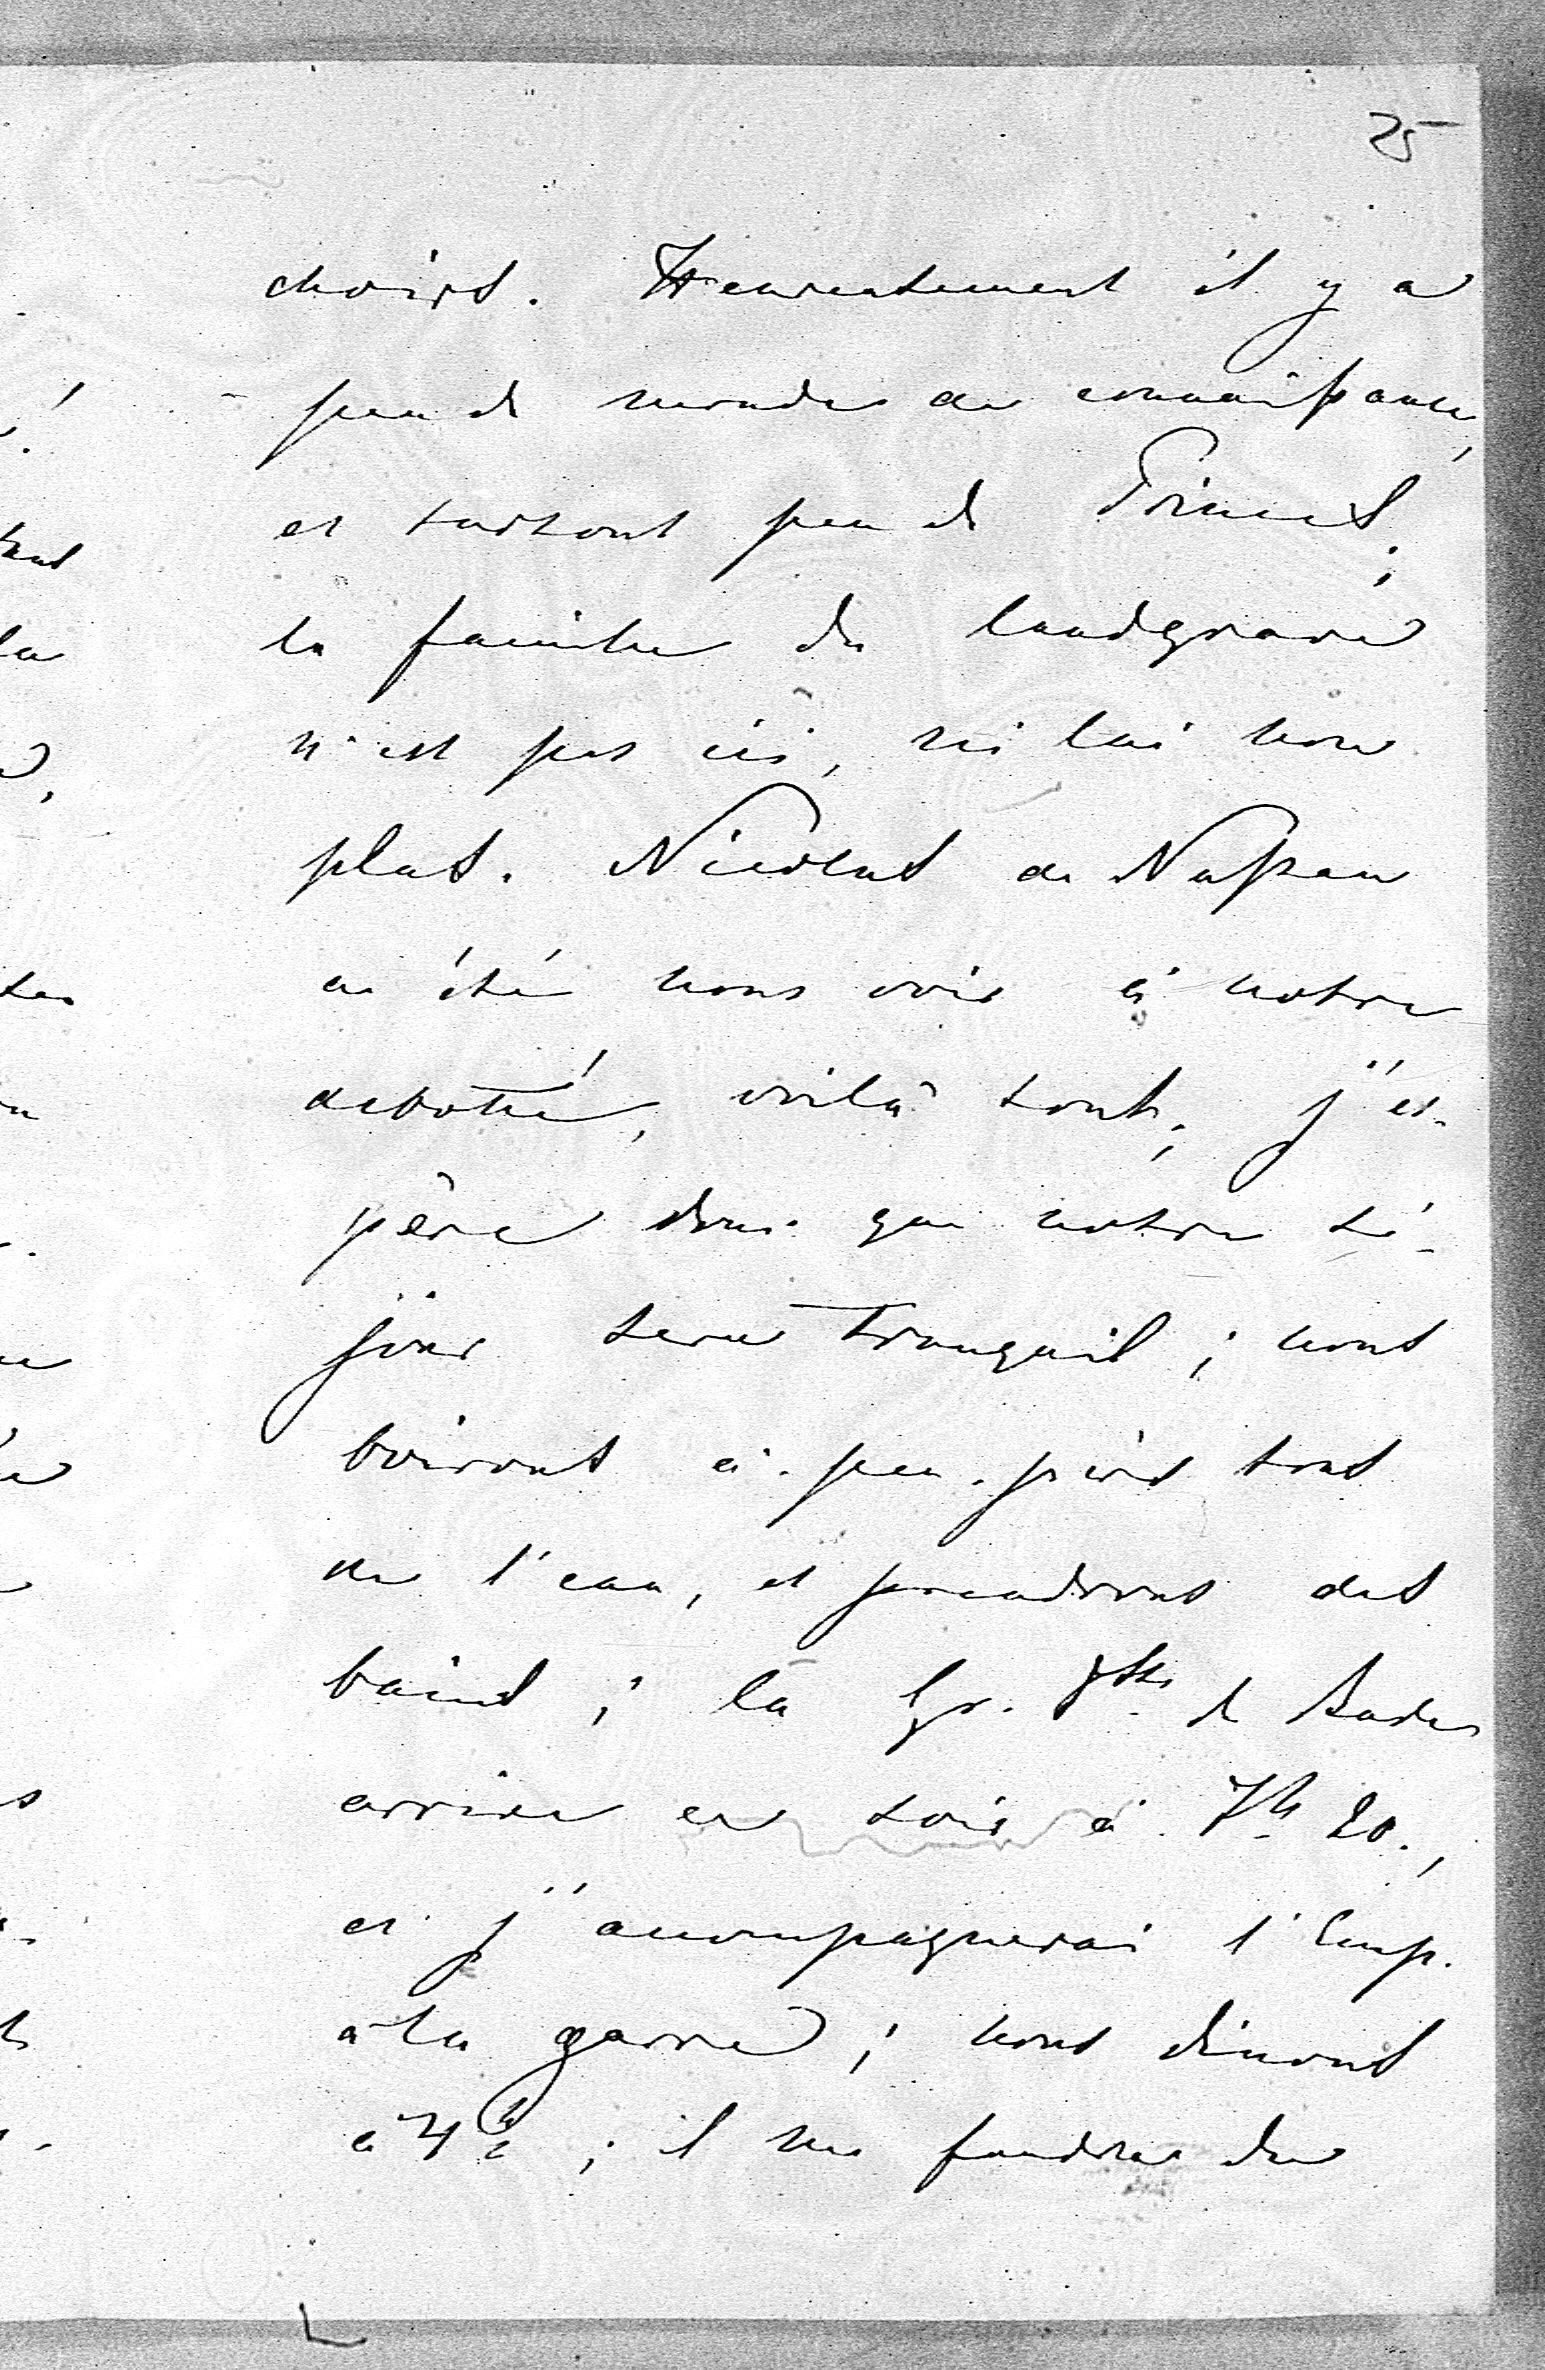 25
choirs. Heureusement il y a
peu de monde de connaissance,
et surtout peu de Princes;
la famille du landgrave
n'est pas ici, ni lui non
plus. Nicolas de Nassau
a été nous voir à notre
arrivée, voilà tout; j'es-
père donc que notre sé-
jour sera tranquil; nous
boirons à-peu-près tous
de l'eau, et prendrons des
bains; la Gr. Dsse de Bade
arrive ce soir à 7h 20.,
et j'accompagnerai l'Imp.
à la garre; nous dinons
à 4h; il me faudra du